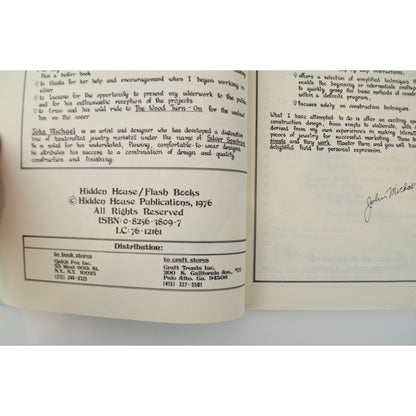 thus a better book
to Vivolia for her help and encouragement when I began working in
silver
to Luciano for the opportunity to present my silverwork to the public
and for his enthusiastic reception of the projects
to Ernie and his wild ride to The Wood Turn-On for the walnut
box on the cover
John Michael is an artist and designer who has developed a distinctive
line of handcrafted jewelry marketed under the name of Silver Spectrum.
He is noted for his understated, flowing, comfortable-to-wear designs.
He attributes his success to a combination of design and quality
construction and finishing.
Hidden House/Flash Books
© Hidden House Publications, 1976
All Rights Reserved
ISBN: 0-8256-3809-7
LC: 76-12161
Distribution:
to book stores
Quick Fox Inc.
33 West 60th St.
N.Y. N.Y. 10023
(212) 246-0325
to craft stores
Craft Trends Inc.
200 S. California Ave.
Palo Alto, Ca. 94306
(415) 327-5581
offers a selection of simplified techniques
enable the beginning or intermediate
to quickly grasp the basic methods of
within a definite program;
focuses solely on construction techniques.
What I have attempted to do is offer an exciting
construction design, from simple to elaborate, and
derived from my own experiences in making
pieces of jewelry for successful marketing. These
simple and they work. Master them and you will have
delightful field for personal expression.
John Michael